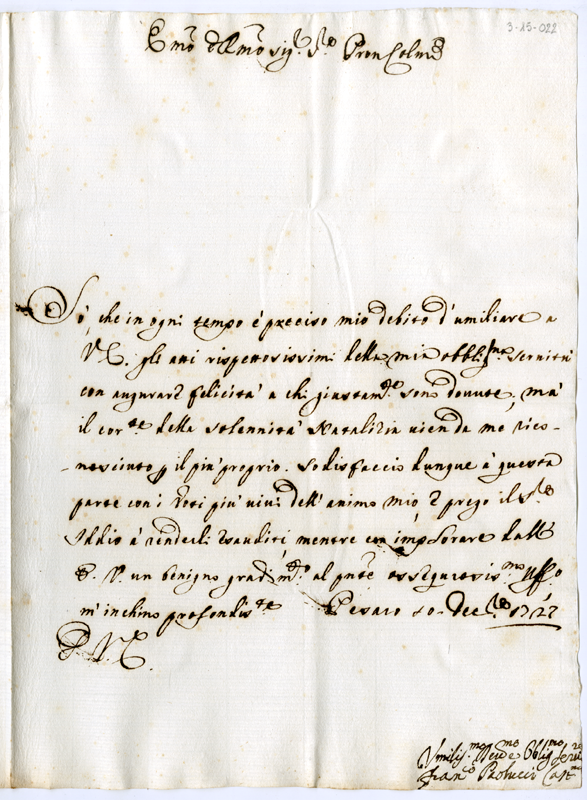 3-15-022
Emo e Rmo Sigr. Sre Pron Colmo
Sò, che in ogni tempo è preciso mio debito d'umiliare a
V. E. gli atti rispettosissimi della mia obbligma servitù
con augurarle felicità a chi giustamte sono dovute; mà
il corte della solennità Natalizia vien da me rico-
-nosciuto p il più proprio. Sodisfaccio dunque à questa
parte con i voti più vivi dell'animo mio, e prego il Sre
Iddio à renderli esauditi mentre con implorare dall'
E. V. un benigno gradimto al pnte ossequiosismo uffo
m'inchino profondiste Pesaro 20. Dec.re 1727
D. V. E.
Umilismo Devmo Obligmo Serre
Franco Paolucci